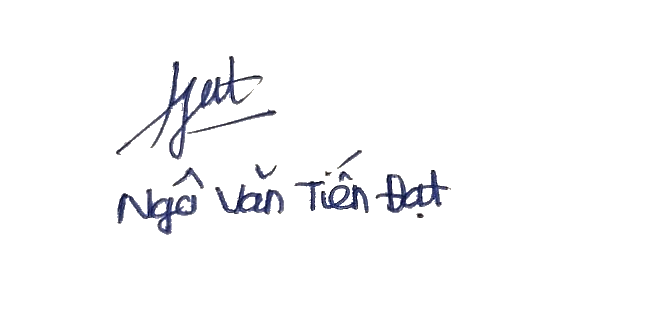 Ngô Văn Tiến Đạt